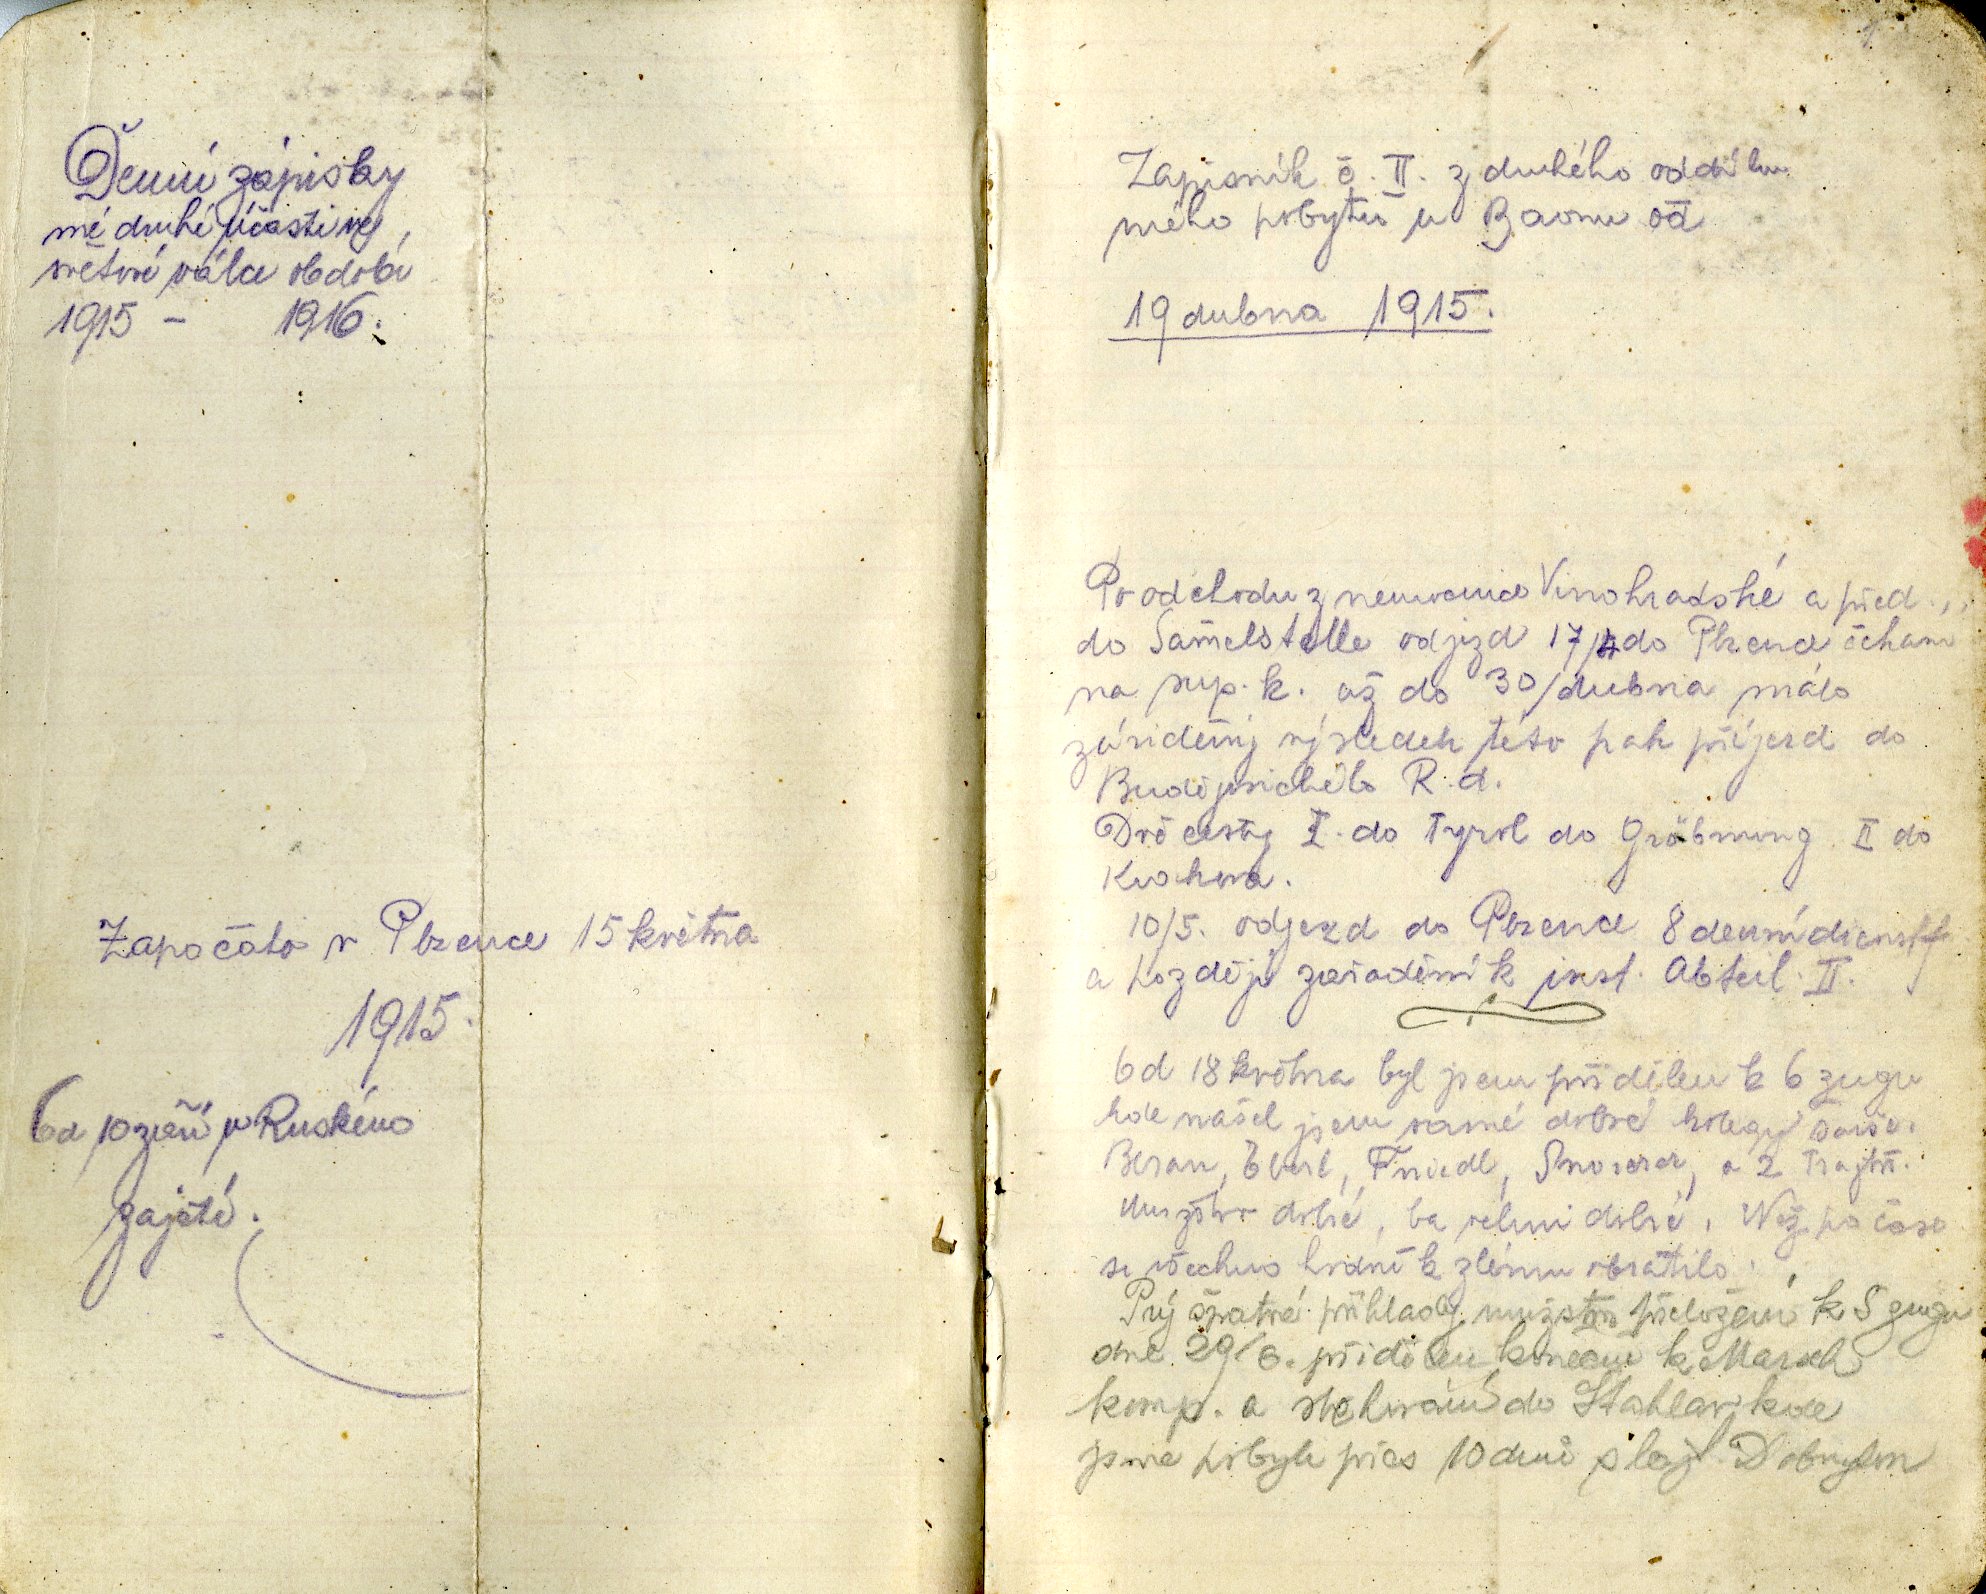 Denní zápisky
mé druhé účasti ve
světové válce období
1915 - 1916.
Započato v Plzence 15 května
1915.
Od 10 září v Ruském
zajetí.
1
Zapisník č. II. z druhého oddílu
mého pobytu u Baonu od
19 dubna 1915.
Po odchodu z nemocnice Vinohradské a před
do Samelstelle odjezd 17/4 do Plzence čekám
na sup. k. až do 30/dubna málo
výsledek této pak příjezd do
R. d.
Dvě cesty I. do Tyrol do Gröbming II do
Krakova.
10/5. odjezd do Plzence 8 denní dienst
a později zařadění k inst. Abteil. II.
Od 18 května byl jsem přidělen k 6 zugu
kde našel jsem samé dobré kolegy
Beran, Eberl, Friedl, a 2
Mužstvo dobré, ba velmi dobré. Než po čase
se všechno hodně k zlému obrátilo.
Prý špatné příklady mužstvu přeložení k 5 zugu
dne 29/6. přidělen konečně k Marsch
komp. a stěhování do Stahlav kde
jsme pobyli přes 10 dní s lajt.